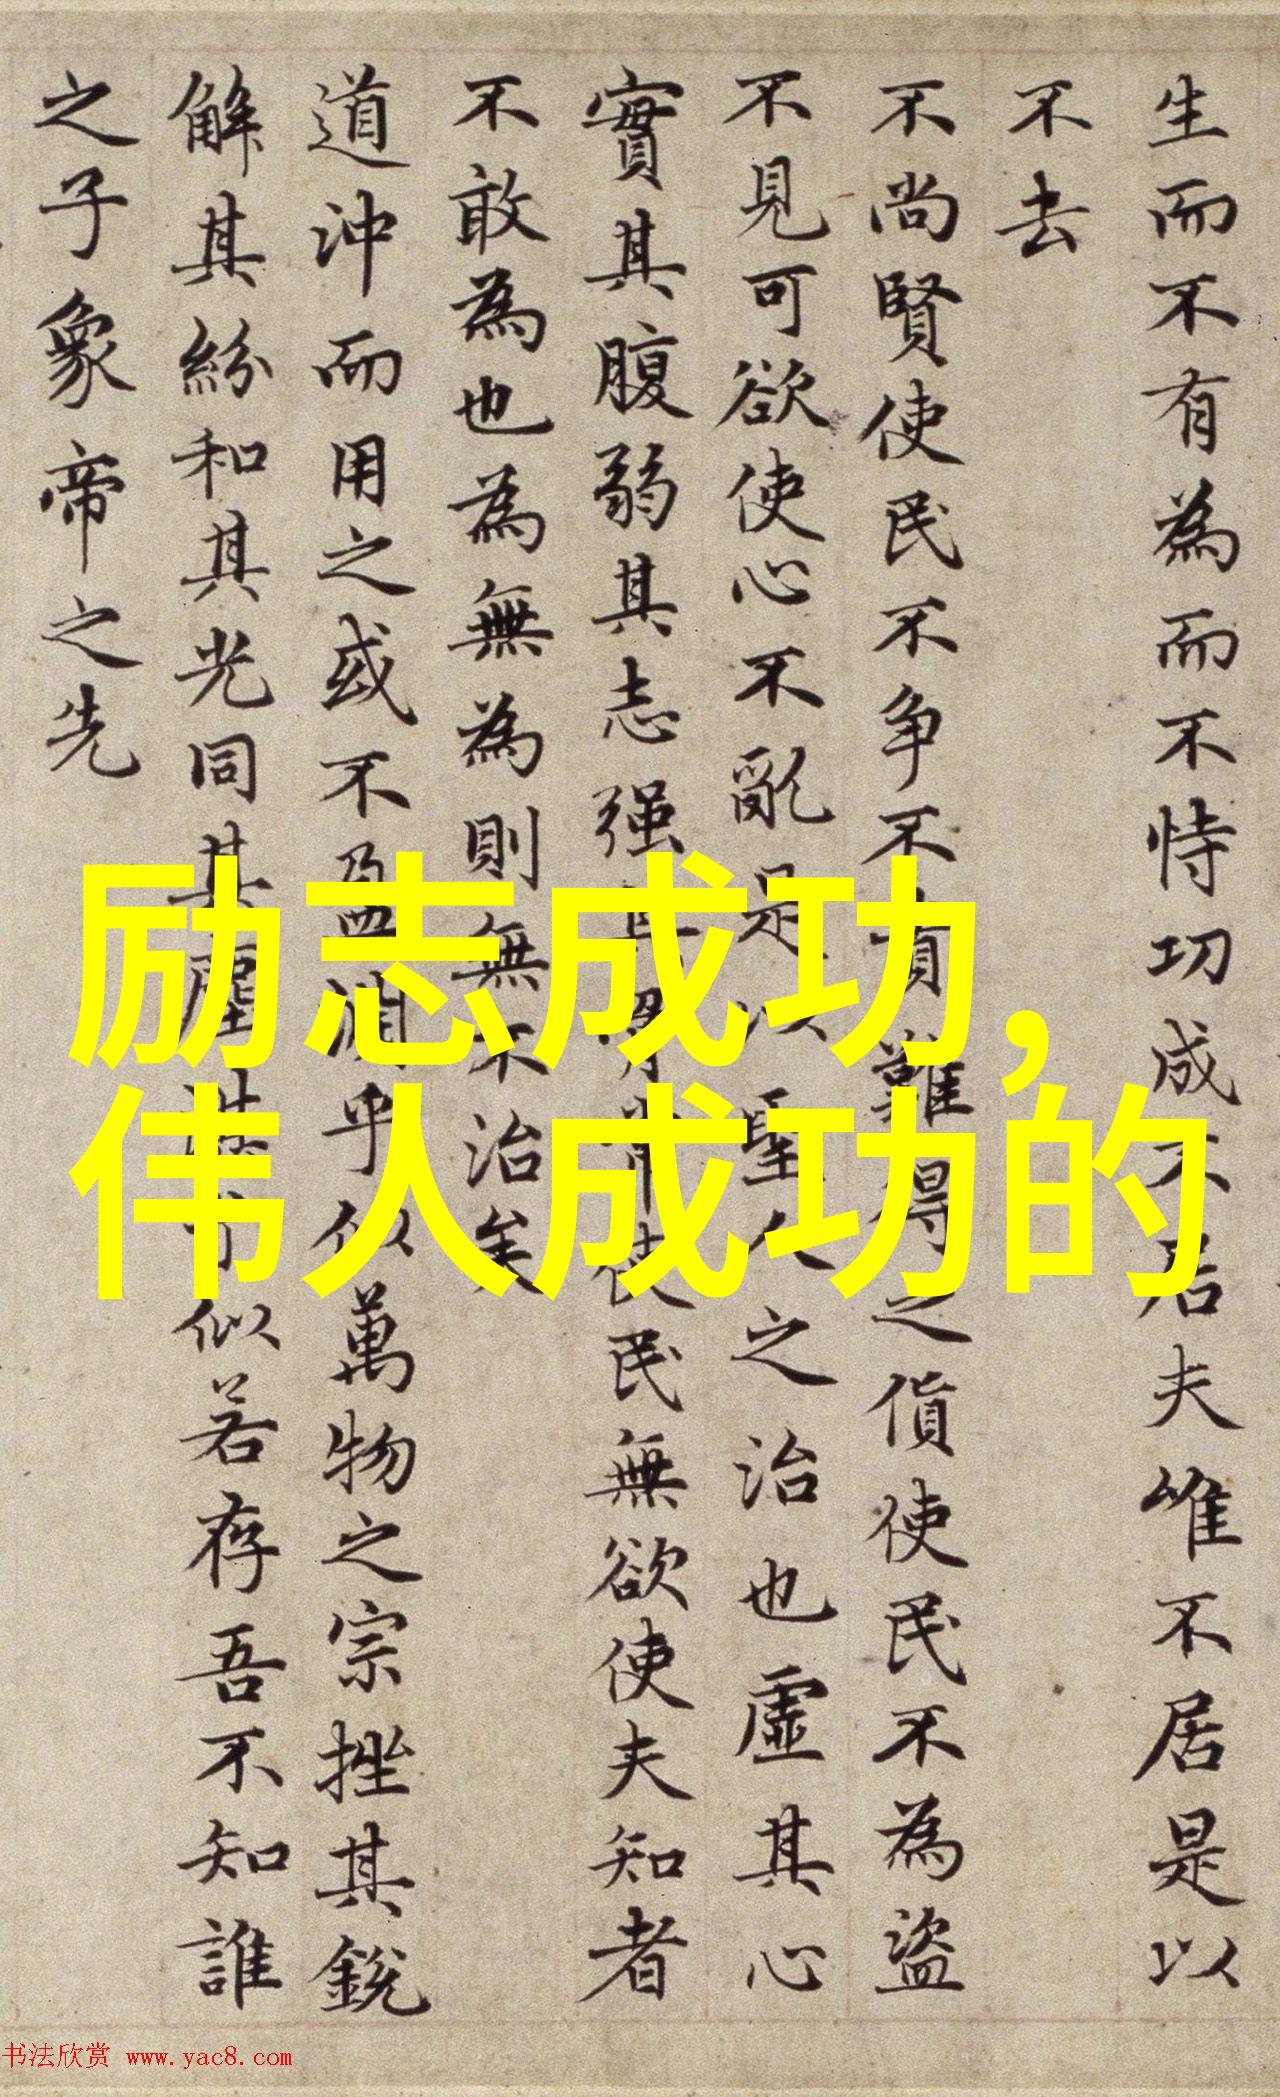 生而不有為而不恃功成不居夫唯不居是以
不去
不尚賢使民不争不貴難得之貨使民不為盜
不見可欲使心不亂是以聖人之治也虛其心
實其腹弱其志强其骨常使民無欲使夫知者
不敢為也為無為則無不治矣
道沖而用之或不盈淵乎似萬物之宗挫其銳
解其紛和其光同其塵湛似若存吾不知誰
之子象帝之先
励志成功,
伟人成功的
书法欣赏 www.yac8.com